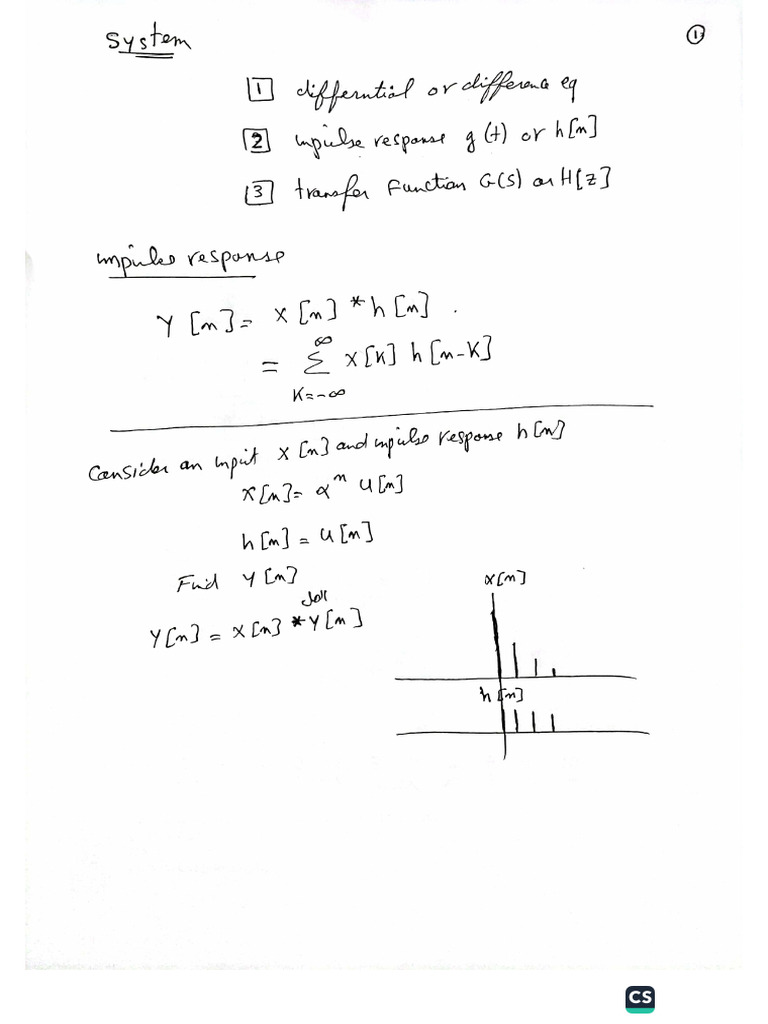 System
①
1 differntial or difference eq
2 impulse response g(t) or h[n]
3 transfer Function G(s) or H[z]
impulse response
Y[n] = X[n] * h[n].
= ∞ Σ K=-∞ X[K] h[n-K]
Consider an input X[n] and impulse response h[n]
x[n] = α^n u[n]
h[n] = u[n]
Find Y[n]
x[n]
Y[n] = X[n] * Y[n]
h[n]
CS